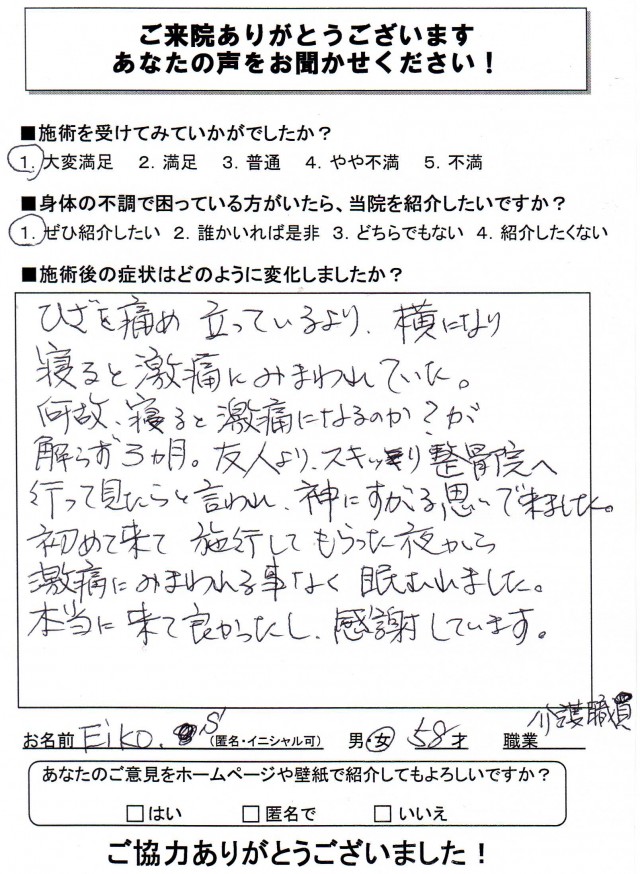 ご来院ありがとうございます
あなたの声をお聞かせください！
■施術を受けてみていかがでしたか？
1. 大変満足 2. 満足 3. 普通 4. やや不満 5. 不満
■身体の不調で困っている方がいたら、当院を紹介したいですか？
1. ぜひ紹介したい 2. 誰かいれば是非 3. どちらでもない 4. 紹介したくない
■施術後の症状はどのように変化しましたか？
ひざを痛め 立っているより、横になり
寝ると激痛にみまわれていた。
何故、寝ると激痛になるのか？が
解らず3ヵ月。友人より、スキッキリ整骨院へ
行って見たらと言われ、神にすがる思いで来ました。
初めて来て 施行してもらった夜から
激痛にみまわれる事なく 眠むれました。
本当に来て良かったし、感謝しています。
お名前 Eiko. S (匿名・イニシャル可) 男・女 58才 職業 介護職員
あなたのご意見をホームページや壁紙で紹介してもよろしいですか？
□はい □匿名で □いいえ
ご協力ありがとうございました！